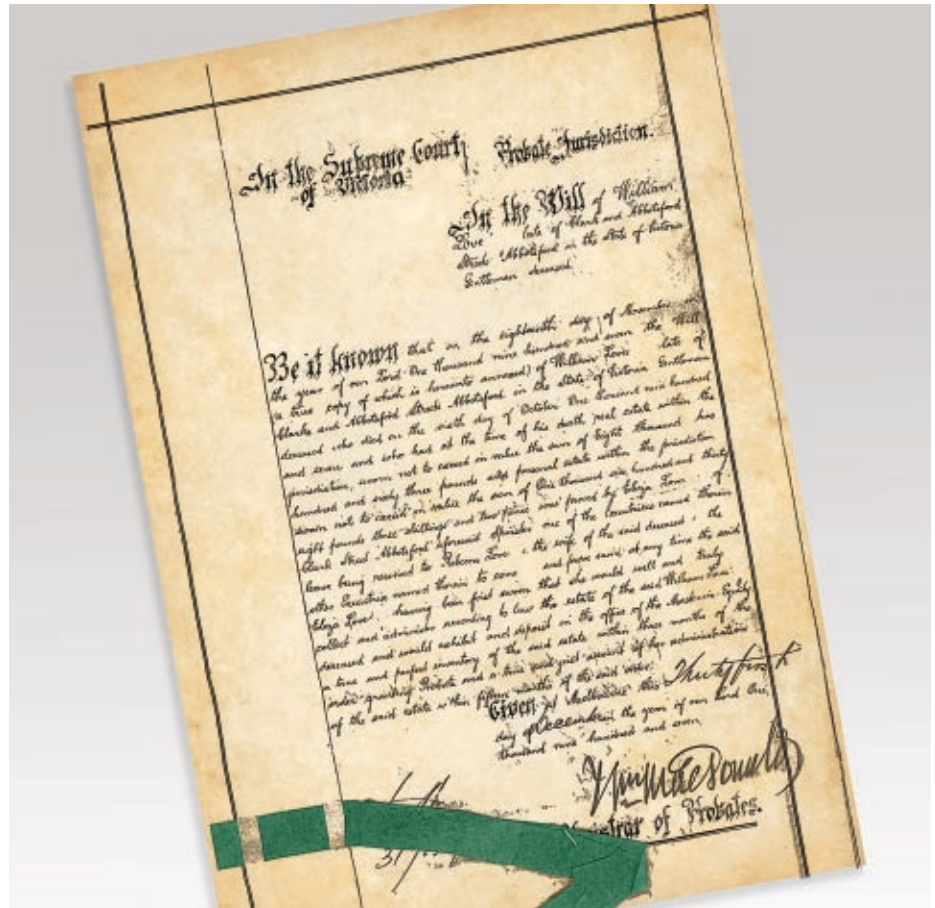 In the Supreme Court
of Victoria
Probate Jurisdiction.
In the Will of William
Love late of Clark and Abbotsford
Streets Abbotsford in the State of Victoria
Gentleman deceased
Be it known that on the eighteenth day of November in
the year of our Lord One thousand nine hundred and seven the Will
(a true copy of which is hereunto annexed) of William Love late of
Clarke and Abbotsford Streets Abbotsford in the State of Victoria Gentleman
deceased who died on the sixth day of October One thousand nine hundred
and seven and who had at the time of his death real estate within the
jurisdiction, sworn not to exceed in value the sum of Eight thousand
hundred and sixty three pounds and personal estate within the jurisdiction
sworn not to exceed in value the sum of One thousand six hundred and thirty
eight pounds three shillings and two pence was proved by Eliza Love of
Clark Street Abbotsford aforesaid Spinster one of the Executrixes named therein
leave being reserved to Rebecca Love the wife of the said deceased the
other Executrix named therein to come and prove same at any time the said
Eliza Love having been first sworn that she would well and truly
collect and administer according to law the estate of the said William Love
deceased and would exhibit and deposit in the office of the Master in Equity
a true and perfect inventory of the said estate within three months of the
order granting Probate and a true and just account of her administration
of the said estate within fifteen months of the said order.
Given at Melbourne this Thirty first
day of December in the year of our Lord One
thousand nine hundred and seven
Wm MacDonald
of Probates.